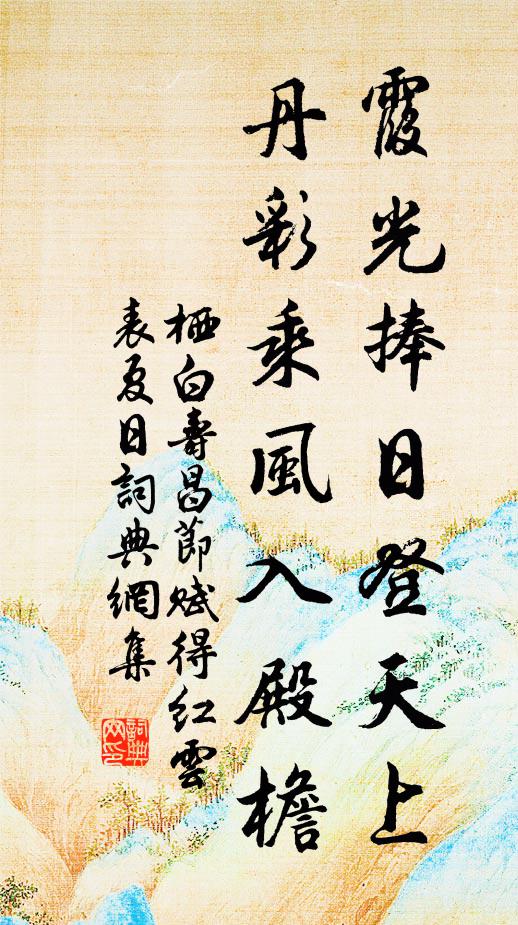 霞光捧日登天上
丹彩乘風入殿檐
栖白壽昌節賦得紅雲
表夏日詞典網集
詞典
网印